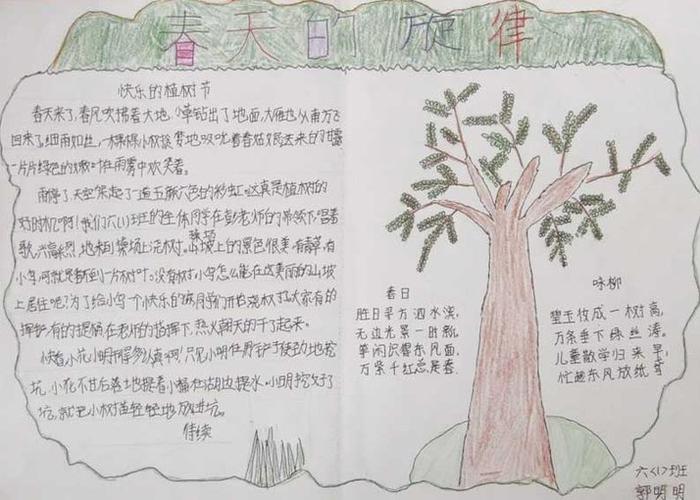 春天的旋律
快乐的植树节
春天来了,春风吹拂着大地,小草钻出了地面,大雁也从南方飞
回来了,细雨如丝,一棵棵小树贪婪地吸吮着春姑娘送来的甘露
一片片绿色的嫩叶在雨雾中欢笑着。
雨停了,天空架起了一道五颜六色的彩虹。这真是植树的
好时机啊!我们六(1)班的全体同学在彭老师的带领下,唱着
歌,兴高采烈地来到操场上
山坡上的景色很美,有
小鸟,可就是
没有树,小鸟怎么能在这美丽的山坡
上居住呢?为了给小鸟一个快乐的
我们开始栽树
大家有的
挥
有的提桶,在老师的指挥下,热火朝天的干了起来。
快看,小花、小明
多么认真啊!只见小明
使劲地挖
坑,小花不甘后落地提着小桶在湖边提水。小明挖好了
坑,就把小树苗轻轻地放进坑。
待续
春日
胜日寻方泗水滨,
无边光景一时新,
等闲识得东风面,
万紫千红总是春
咏柳
碧玉妆成一树高,
万条垂下绿丝涛。
儿童散学归来早,
忙趁东风放纸鸢
六(1)班
郭明明